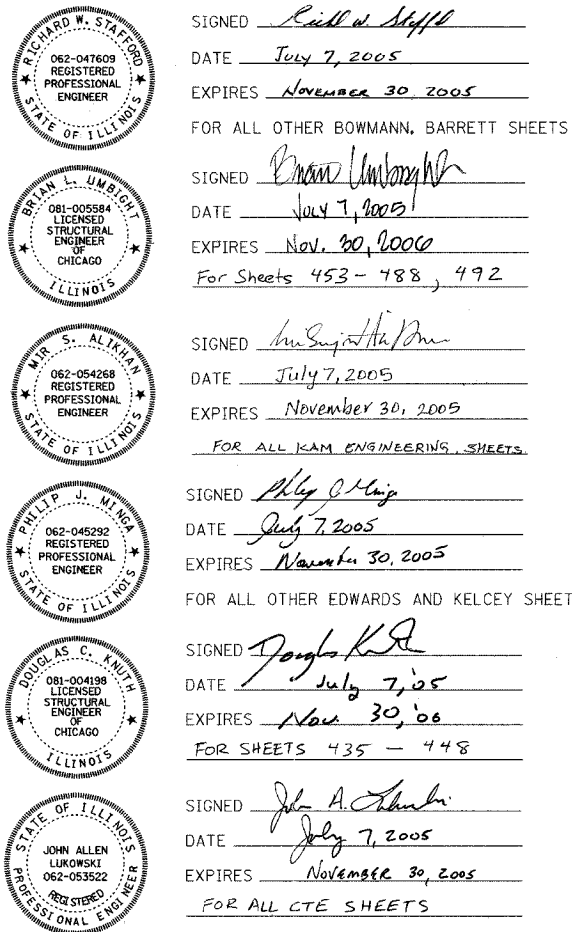 RICHARD W. STAFFORD
062-047609
REGISTERED
PROFESSIONAL
ENGINEER
STATE OF ILLINOIS
SIGNED
DATE July 7, 2005
EXPIRES November 30, 2005
FOR ALL OTHER BOWMANN, BARRETT SHEETS
BRIAN L. UMBIGHT
081-005584
LICENSED
STRUCTURAL
ENGINEER
OF
CHICAGO
ILLINOIS
SIGNED Brian
DATE July 7, 2005
EXPIRES Nov. 30, 2006
For Sheets 453 - 488, 492
MIR S. ALIKHAN
062-054268
REGISTERED
PROFESSIONAL
ENGINEER
STATE OF ILLINOIS
SIGNED
DATE July 7, 2005
EXPIRES November 30, 2005
FOR ALL KAM ENGINEERING SHEETS
PHILIP J. MINGA
062-045292
REGISTERED
PROFESSIONAL
ENGINEER
STATE OF ILLINOIS
SIGNED
DATE July 7, 2005
EXPIRES November 30, 2005
FOR ALL OTHER EDWARDS AND KELCEY SHEET
DOUGLAS C. KNUTH
081-004198
LICENSED
STRUCTURAL
ENGINEER
OF
CHICAGO
ILLINOIS
SIGNED
DATE July 7, '05
EXPIRES Nov. 30, '06
FOR SHEETS 435 - 448
STATE OF ILLINOIS
JOHN ALLEN
LUKOWSKI
062-053522
REGISTERED
PROFESSIONAL ENGINEER
SIGNED John A.
DATE July 7, 2005
EXPIRES November 30, 2005
FOR ALL CTE SHEETS